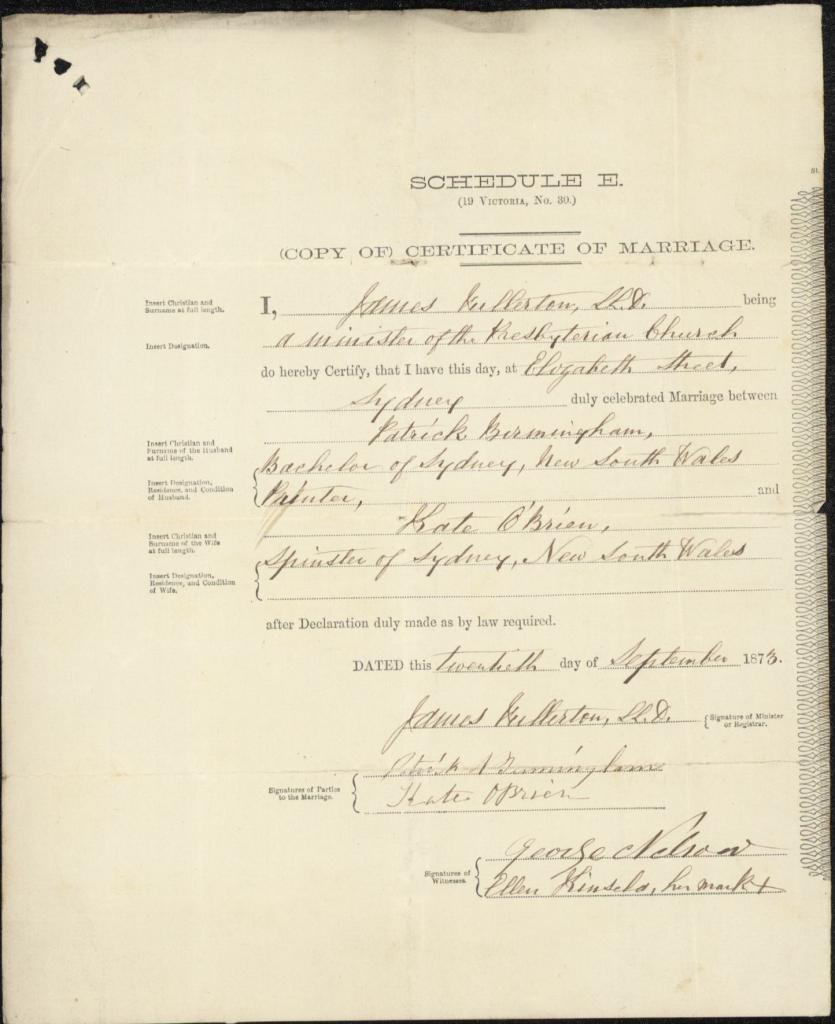 SCHEDULE E.
(19 Victoria, No. 30.)
(COPY OF) CERTIFICATE OF MARRIAGE.
Insert Christian and
Surname at full length.
I, James Fullerton, LL.D. being
Insert Designation.
a minister of the Presbyterian Church
do hereby Certify, that I have this day, at Elizabeth Street,
Sydney duly celebrated Marriage between
Insert Christian and
Surname of the Husband
at full length.
Patrick Birmingham,
Insert Designation,
Residence, and Condition
of Husband.
Bachelor of Sydney, New South Wales
Printer, and
Insert Christian and
Surname of the Wife
at full length.
Kate O'Brien,
Insert Designation,
Residence, and Condition
of Wife.
Spinster of Sydney, New South Wales
after Declaration duly made as by law required.
DATED this twentieth day of September 1873.
James Fullerton, LL.D. Signature of Minister
or Registrar.
Signatures of Parties
to the Marriage.
Patrick Birmingham
Kate O'Brien
Signatures of
Witnesses.
George Nelson
Ellen Kinsela, her mark x